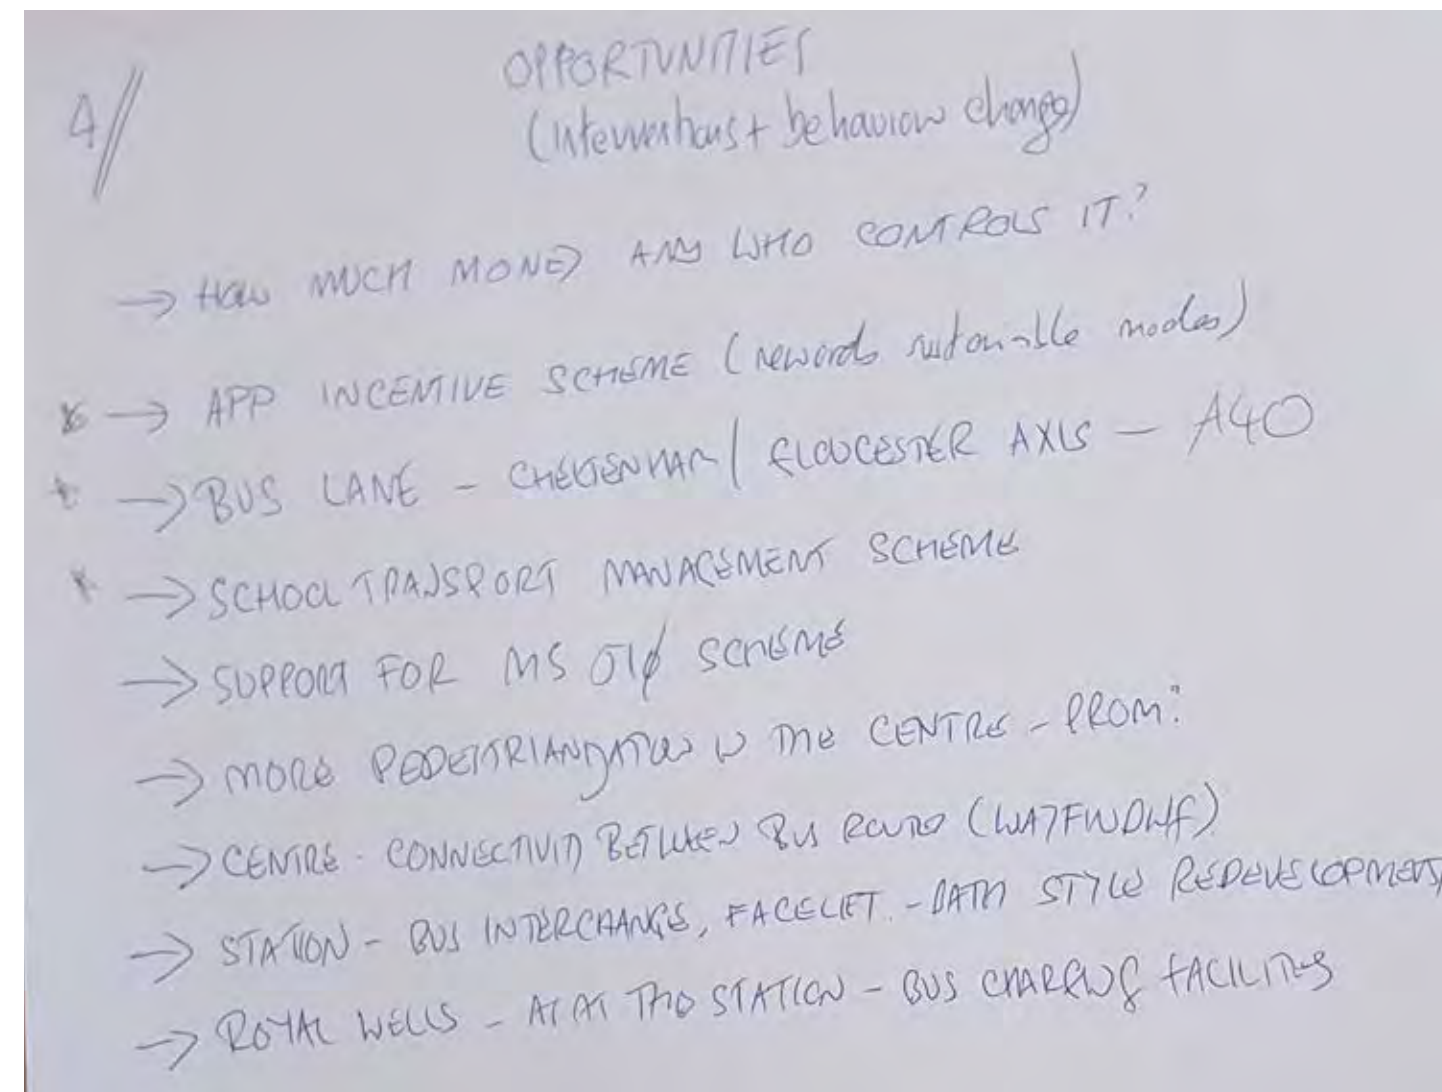 4/
OPPORTUNITIES
(interventions + behaviour change)
→ HOW MUCH MONEY AND WHO CONTROLS IT?
* → APP INCENTIVE SCHEME (rewards sustainable modes)
* → BUS LANE - CHELTENHAM / GLOUCESTER AXIS - A40
* → SCHOOL TRANSPORT MANAGEMENT SCHEME
→ SUPPORT FOR SCHEME
→ MORE PEDESTRIANIZATION IN THE CENTRE - PROM?
→ CENTRE - CONNECTIVITY BETWEEN BUS ROUTES
→ STATION - BUS INTERCHANGE, FACELIFT - BATH STYLE REDEVELOPMENT
→ ROYAL WELLS - STATION - BUS CHARGING FACILITIES